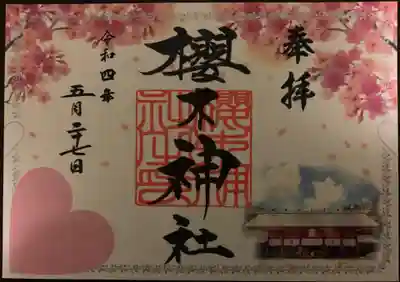 奉拝
櫻木神社
令和四年
五月二十七日